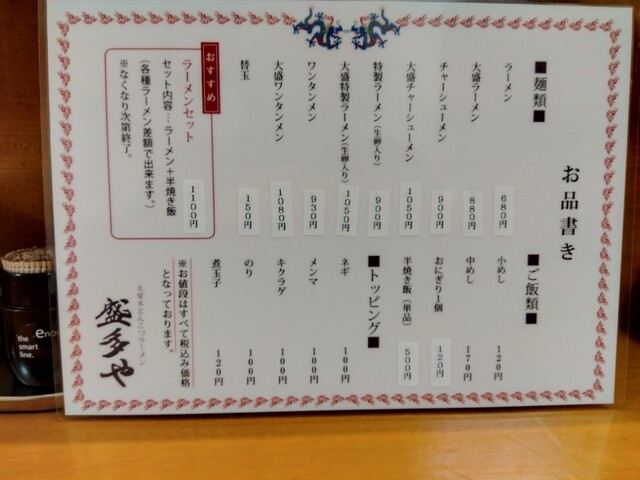 お品書き
■麺類■
ラーメン 680円
大盛ラーメン 880円
チャーシューメン 900円
大盛チャーシューメン 1050円
特製ラーメン(生卵入り) 900円
大盛特製ラーメン(生卵入り) 1050円
ワンタンメン 930円
大盛ワンタンメン 1080円
替玉 150円
おすすめ
ラーメンセット 1100円
セット内容…ラーメン+半焼き飯
(各種ラーメン差額で出来ます。)
※なくなり次第終了。
■ご飯類■
小めし 120円
中めし 170円
おにぎり1個 120円
半焼き飯(単品) 500円
■トッピング■
ネギ 100円
メンマ 100円
キクラゲ 100円
のり 100円
煮玉子 120円
※お値段はすべて税込み価格
となっております。
久留米とんこつラーメン
盛多や
the
smart
line.